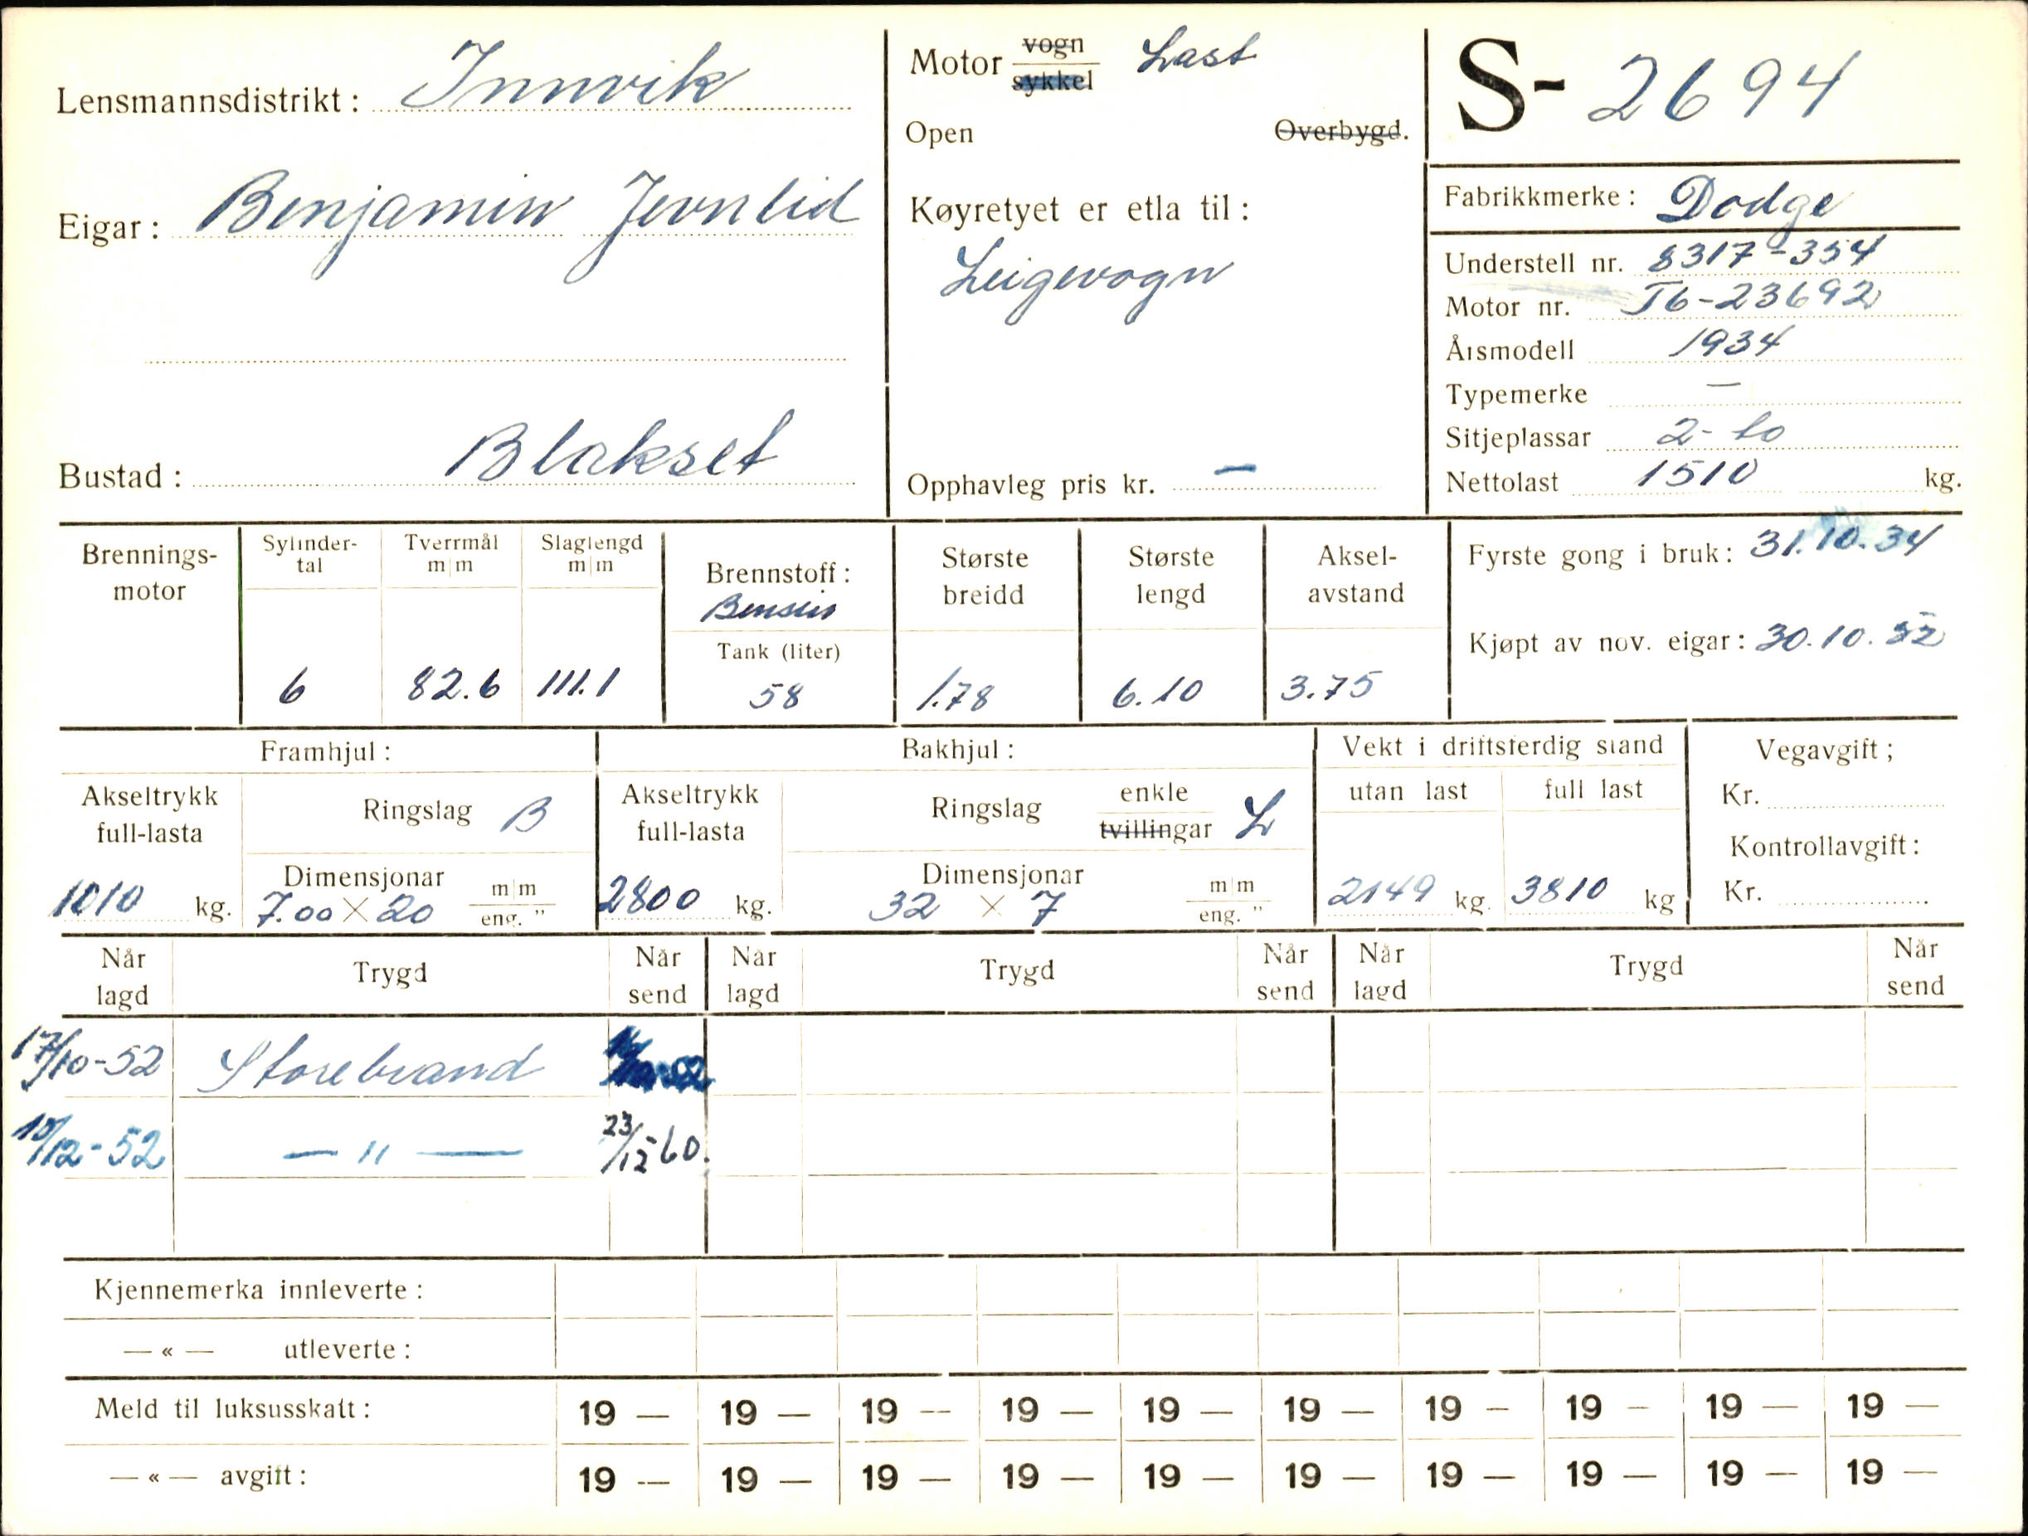 Lensmannsdistrikt: Innvik
Eigar: Benjamin Jevnlid
Bustad: Blakset
Motor vogn Last
sykkel
Open Overbygd.
Køyretyet er etla til:
Leigevogn
Opphavleg pris kr. —
S- 2694
Fabrikkmerke: Dodge
Understell nr. 8317-354
Motor nr. T6-23692
Årsmodell 1934
Typemerke —
Sitjeplassar 2-to
Nettolast 1510 kg.
Brennings-
motor
Sylinder-
tal
6
Tverrmål
m|m
82.6
Slaglengd
m|m
111.1
Brennstoff:
Bensin
Tank (liter)
58
Største
breidd
1.78
Største
lengd
6.10
Aksel-
avstand
3.75
Fyrste gong i bruk: 31.10.34
Kjøpt av nov. eigar: 30.10.52
Framhjul:
Akseltrykk
full-lasta
1010 kg.
Ringslag B
Dimensjonar
7.00 × 20 m|m
eng. "
Bakhjul:
Akseltrykk
full-lasta
2800 kg.
Ringslag enkle
tvillingar L
Dimensjonar
32 × 7 m|m
eng. "
Vekt i driftsferdig stand
utan last full last
2149 kg. 3810 kg
Vegavgift;
Kr.
Kontrollavgift:
Kr.
Når
lagd Trygd Når
send Når
lagd Trygd Når
send Når
lagd Trygd Når
send
17/10-52 Storebrand
10/12-52 — " — 23/12-60.
Kjennemerka innleverte:
— « — utleverte:
Meld til luksusskatt: 19 — 19 — 19 — 19 — 19 — 19 — 19 — 19 — 19 — 19 —
— « — avgift: 19 — 19 — 19 — 19 — 19 — 19 — 19 — 19 — 19 — 19 —